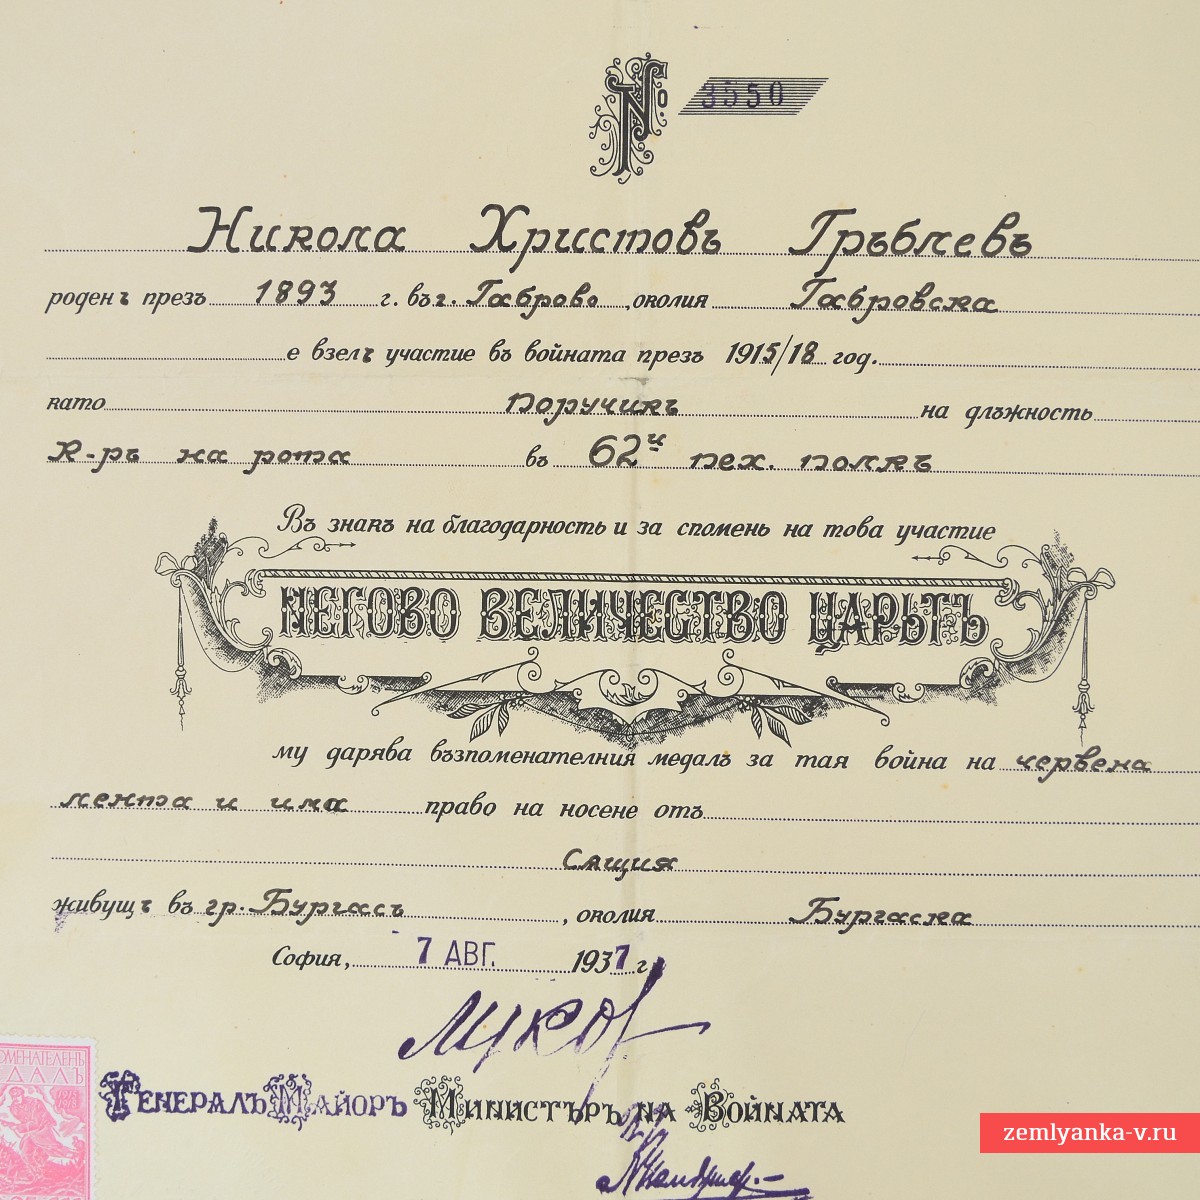 № 3550
Никола Христовъ Гръблевъ
роденъ презъ 1893 г. въ г. Габрово, околия Габровска
е взелъ участие въ войната презъ 1915/18 год.
като поручикъ на длъжность
К-ръ на рота въ 62й пех. полкъ
Въ знакъ на благодарность и за споменъ на това участие
НЕГОВО ВЕЛИЧЕСТВО ЦАРЬТЪ
му дарява възпоменателния медалъ за тая война на червена
лента и има право на носене отъ
Сѫщия
живущъ въ гр. Бургасъ, околия Бургаска
София, 7 АВГ. 1937 г.
Луков
ГЕНЕРАЛЪ МАЙОРЪ МИНИСТЪРЪ НА ВОЙНАТА
ОМЕНАТЕЛЕНЪ
ДАЛЪ
zemlyanka-v.ru